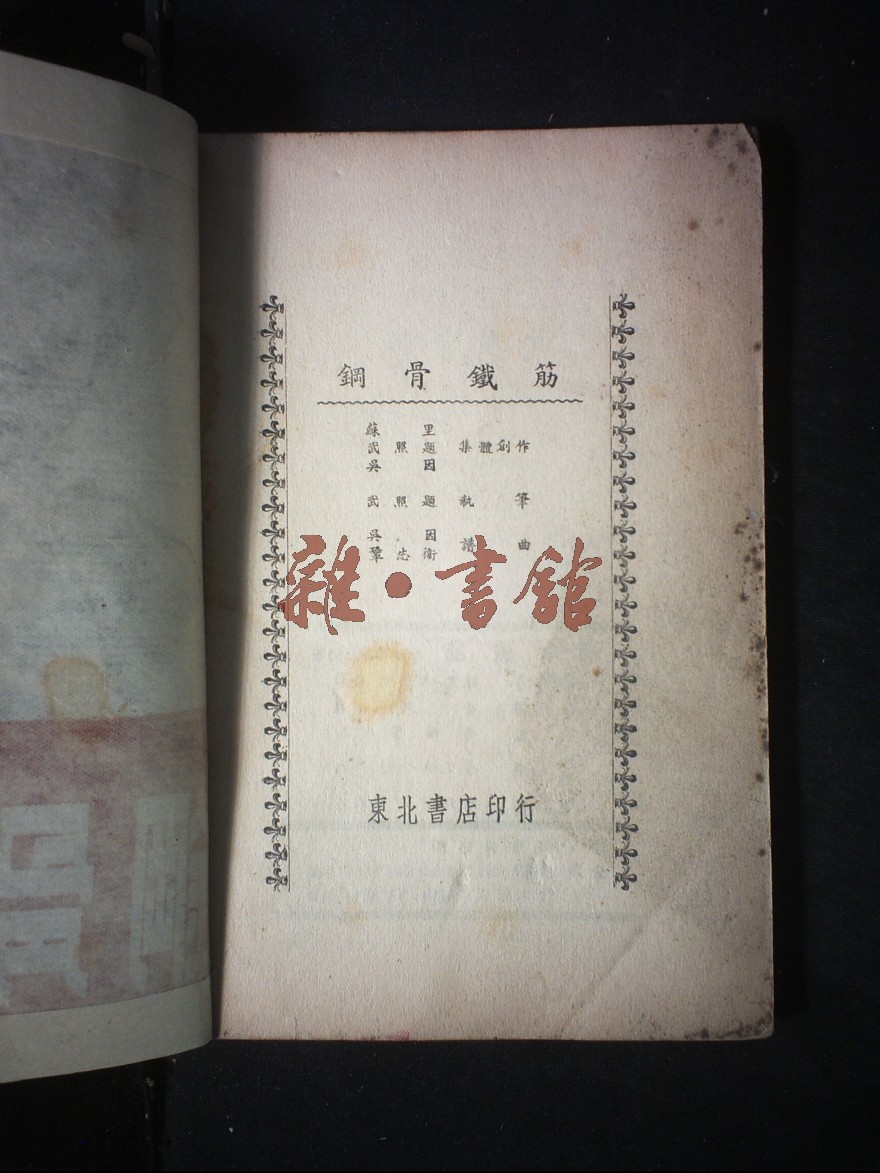 鋼骨鐵筋
蘇里
武照題 集體創作
吳因
武照題 執筆
吳因
鞏忠衛 譜曲
雜·書館
東北書店印行